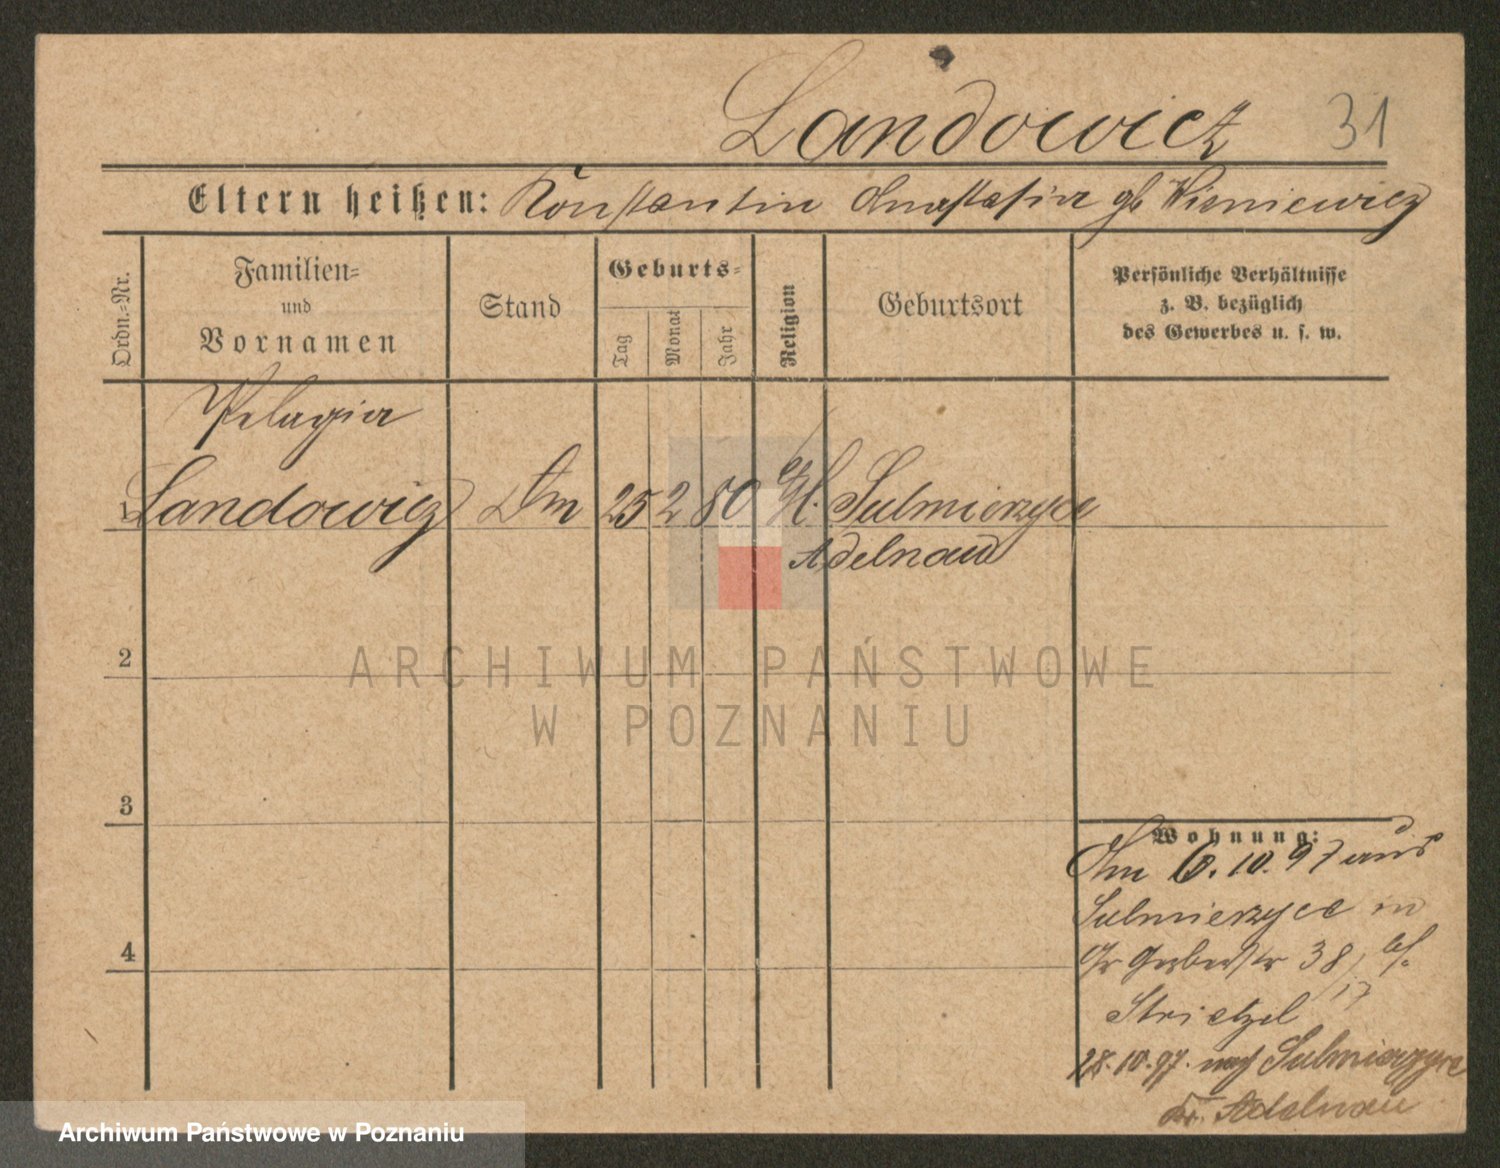 Landowicz 31
Eltern heißen: Konstantin Anastasia gb Wisniewicz
Ordn.-Nr.
Familien-
und
Vornamen
Stand
Geburts-
Tag
Monat
Jahr
Religion
Geburtsort
Persönliche Verhältnisse
z. B. bezüglich
des Gewerbes u. s. w.
Pelagia
1 Landowicz Dm 25 2 80 Sulmierzyce
Adelnau
2
3
4
Wohnung:
Am 6.10.97 aus
Sulmierzyce in
Gr Gerberstr 38/
17
Strietzel
28.10.97. nach Sulmierzyce
Kr. Adelnau
ARCHIWUM PAŃSTWOWE
W POZNANIU
Archiwum Państwowe w Poznaniu